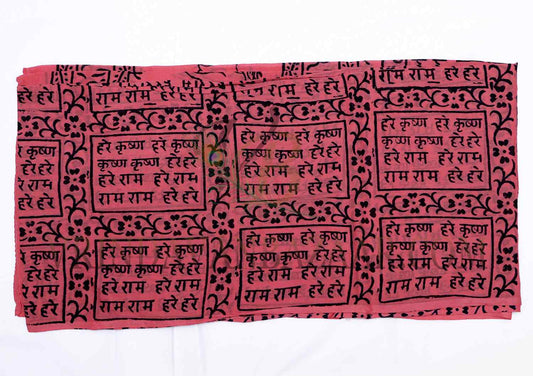 हरे हरे
राम राम हरे हरे
राम राम हरे हरे
राम राम हरे हरे
हरे कृष्ण हरे कृष्ण
कृष्ण कृष्ण हरे हरे
हरे राम हरे राम
राम राम हरे हरे
हरे कृष्ण हरे कृष्ण
कृष्ण कृष्ण हरे हरे
हरे राम हरे राम
राम राम हरे हरे
हरे कृष्ण हरे कृष्ण
कृष्ण कृष्ण हरे हरे
हरे राम हरे राम
राम राम हरे हरे
कृष्ण
हरे हरे
राम
हरे हरे
हरे कृष्ण हरे कृष्ण
कृष्ण कृष्ण हरे हरे
हरे राम हरे राम
राम राम हरे हरे
हरे कृष्ण हरे कृष्ण
कृष्ण कृष्ण हरे हरे
हरे राम हरे राम
राम राम हरे हरे
हरे कृष्ण हरे कृष्ण
कृष्ण कृष्ण हरे हरे
हरे राम हरे राम
राम राम हरे हरे
कृष्ण
हरे हरे
राम
हरे हरे